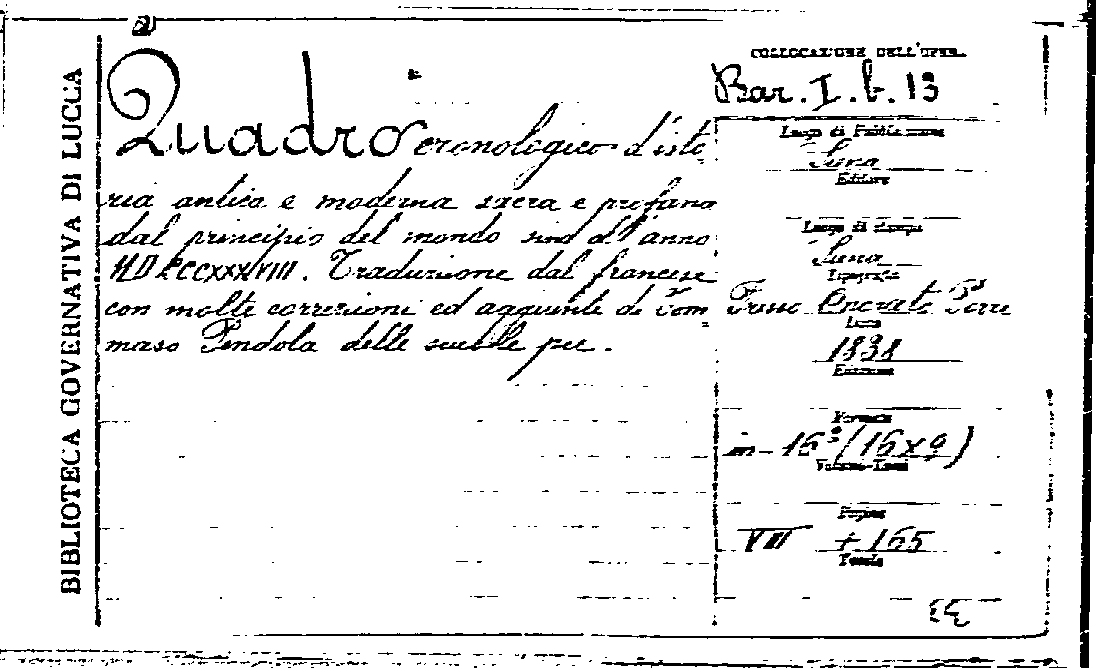 BIBLIOTECA GOVERNATIVA DI LUCCA
Quadro cronologico d'isto
ria antica e moderna sacra e profana
dal principio del mondo sino all'anno
MDCCCXXXVIII. Traduzione dal francese
con molte correzioni ed aggiunte di Tom
maso Pendola delle scuole pie.
COLLOCAZIONE DELL'OPERA
Bar. I. b. 13
Luogo di Pubblicazione
Siena
Editore
Luogo di stampa
Siena
Tipografia
Presso Onorato Porri
Anno
1838
Edizione
Formato
in-16° (16x9)
Volume-Tomi
Pagine
VIII + 165
Tavole